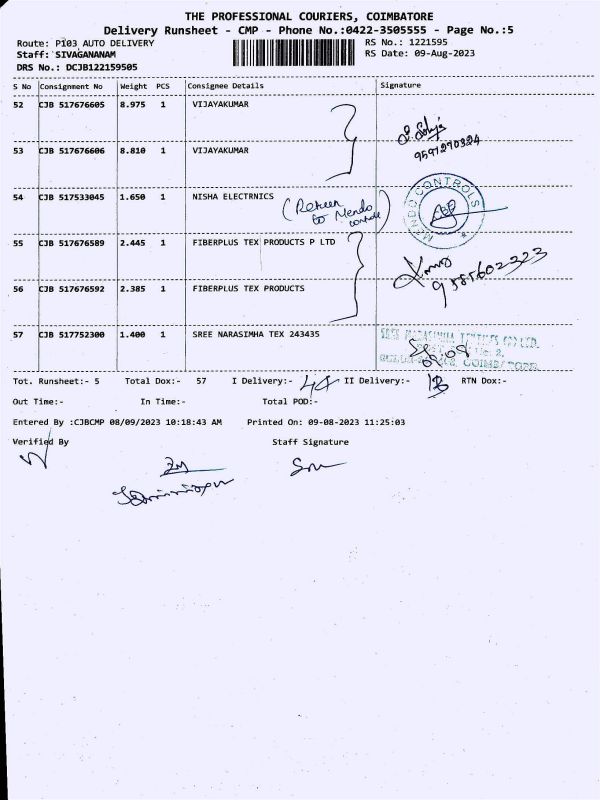 THE PROFESSIONAL COURIERS, COIMBATORE
Delivery Runsheet - CMP - Phone No.:0422-3505555 - Page No.:5
Route: P103 AUTO DELIVERY RS No.: 1221595
Staff: SIVAGANANAM RS Date: 09-Aug-2023
DRS No.: DCJB122159505
S No Consignment No Weight PCS Consignee Details Signature
52 CJB 517676605 8.975 1 VIJAYAKUMAR
53 CJB 517676606 8.810 1 VIJAYAKUMAR 9597270324
54 CJB 517533045 1.650 1 NISHA ELECTRNICS MENDO CONTROLS
(Return
to Mendo
55 CJB 517676589 2.445 1 FIBERPLUS TEX PRODUCTS P LTD
9585602323
56 CJB 517676592 2.385 1 FIBERPLUS TEX PRODUCTS
57 CJB 517752300 1.400 1 SREE NARASIMHA TEX 243435 SREE NARASIMHA TEXTILES (P) LTD.
Tot. Runsheet:- 5 Total Dox:- 57 I Delivery:- 44 II Delivery:- 13 RTN Dox:-
Out Time:- In Time:- Total POD:-
Entered By :CJBCMP 08/09/2023 10:18:43 AM Printed On: 09-08-2023 11:25:03
Verified By Staff Signature